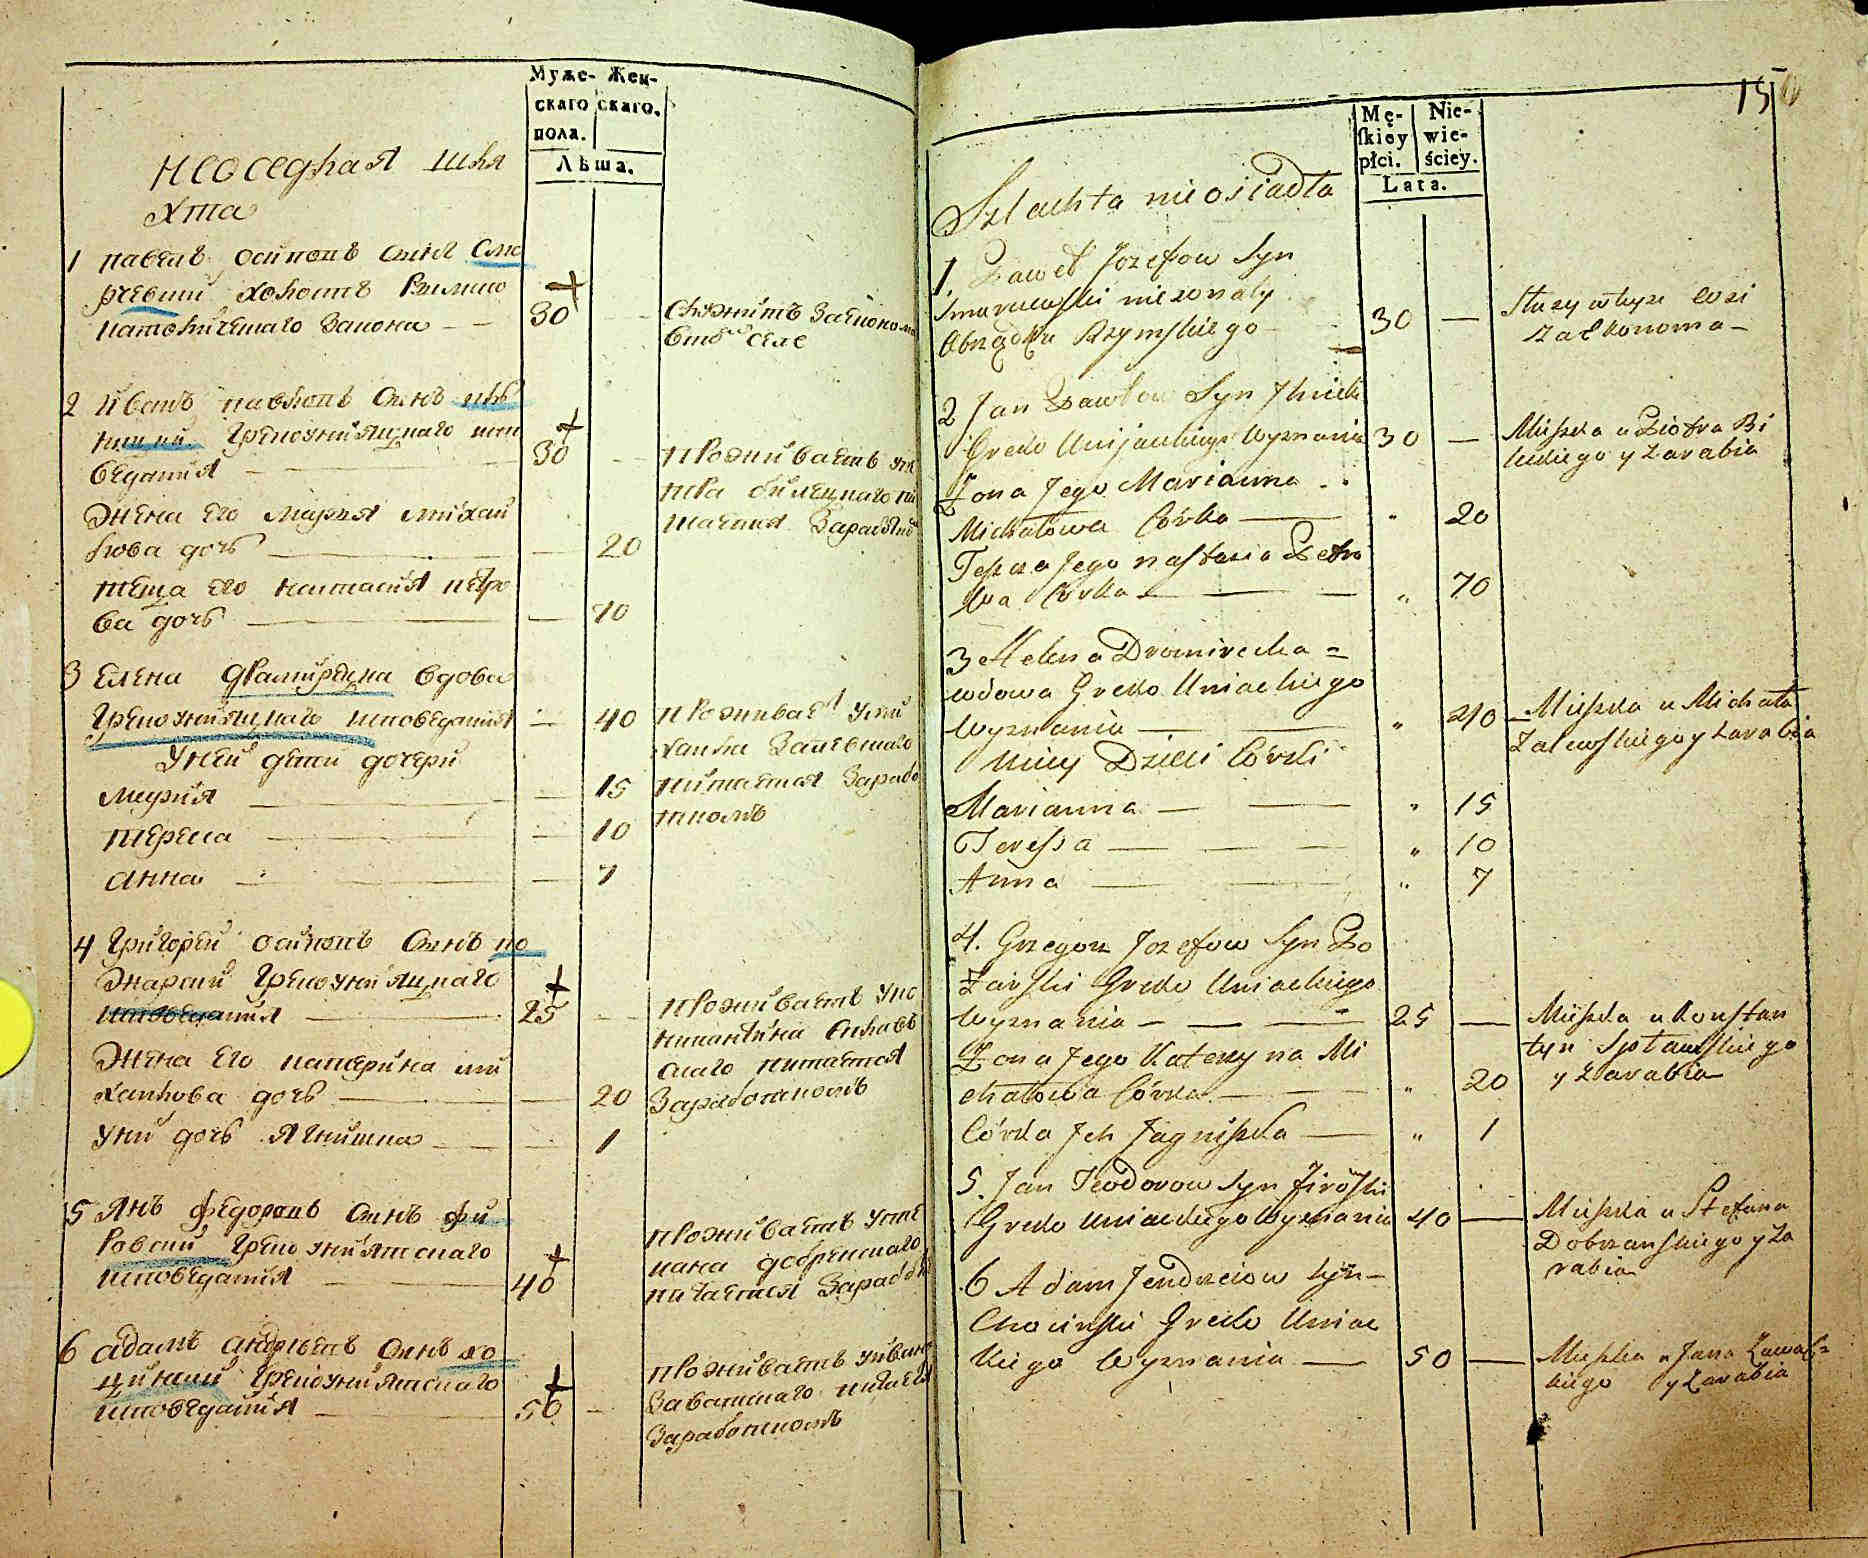 Муже- Жен-
скаго скаго.
пола.
Лѣта.
неоседлая шля
хта
1 павелъ осиповъ сынъ сма
ржевский холостъ Римско
католического закона 30
служитъ за економа
2 иванъ павловъ сынъ
грекоунияцкаго испо
ведания 30
проживаетъ у пе
тра билецкаго пи
тается
жена его марья михай
лова дочь 20
теща его настасия петро
ва дочь 70
3 Елена драмирецка вдова
грекоуницкаго исповедания 40
проживает у ми
хайла залевскаго
питается зарабо
ткомъ
у ней дети дочери
мария 15
тереса 10
анна 7
4 григорей осиповъ сынъ по
жарский грекоуницкаго
исповедания 25
проживаетъ у ко
нстантина
питается
заработкомъ
жена его катерина ми
хайлова дочь 20
у них дочь Ягнишка 1
5 Янъ федоровъ сынъ фи
ровский грекоуниятскаго
исповедания 40
проживаетъ у сте
пана добренскаго
питается
6 адамъ андреевъ сынъ хо
цинский грекоуниятскаго
исповедания 50
проживаетъ у ивана
завацкаго питается
заработкомъ
150
Mę- Nie-
ſkiey wie-
płci. ściey.
Lata.
Szlachta nieosiadła
1. Paweł Jozefow Syn
Smarzewski niezonaty
Obrządku Rzymskiego 30 —
Słuzy
za Ekonoma —
2 Jan Pawłow Syn
Greko Unijackiego Wyznania 30 —
Miszka u Piotra Bi
leckiego y Zarabia
Zona Jego Marianna
Michałowa Córka — „ 20
Teszcza Jego Nastazia Petro
wa Córka — „ 70
3 Helena Dromirecka =
wdowa Greko Uniackiego
Wyznania — „ 40
Miszka u Michała
Zalewskiego y Zarabia
Dzieci Córki
Marianna — „ 15
Teressa — „ 10
Anna — „ 7
4. Grzegorz Jozefow Syn Po
Zarski Greko Uniackiego
Wyznania — 25 —
Miszka u Konstan
tyn
y Zarabia
Zona Jego Katerzyna Mi
chałowa Córka — „ 20
Córka Ich Jagniszka — „ 1
5. Jan Teodorow Syn Firoski
Greko Uniackiego Wyznania 40 —
Miszka u Stefana
Dobrzanskiego y Za
rabia
6 Adam Jendrzeiow Syn —
Chocinski Greko Uniac
kiego Wyznania — 50 —
Miszka u Jana Zawac=
kiego y Zarabia